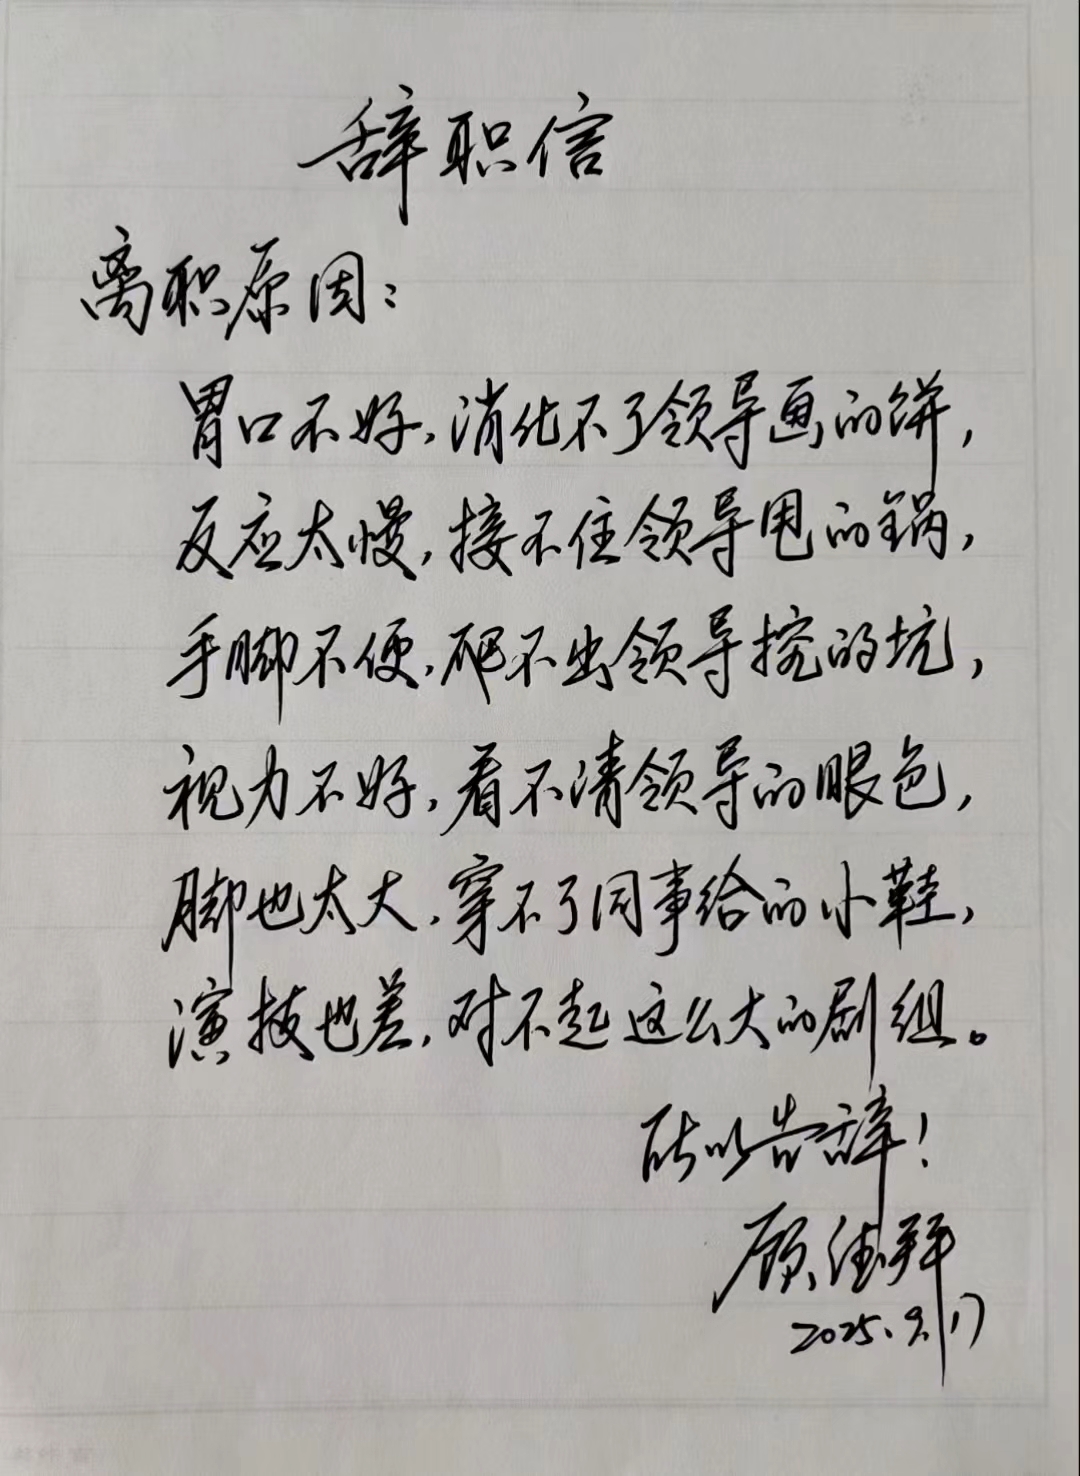 辞职信
离职原因：
胃口不好，消化不了领导画的饼，
反应太慢，接不住领导甩的锅，
手脚不便，爬不出领导挖的坑，
视力不好，看不清领导的眼色，
脚也太大，穿不了同事给的小鞋，
演技也差，对不起这么大的剧组。
所以告辞！
顾德拜
2025.9.17